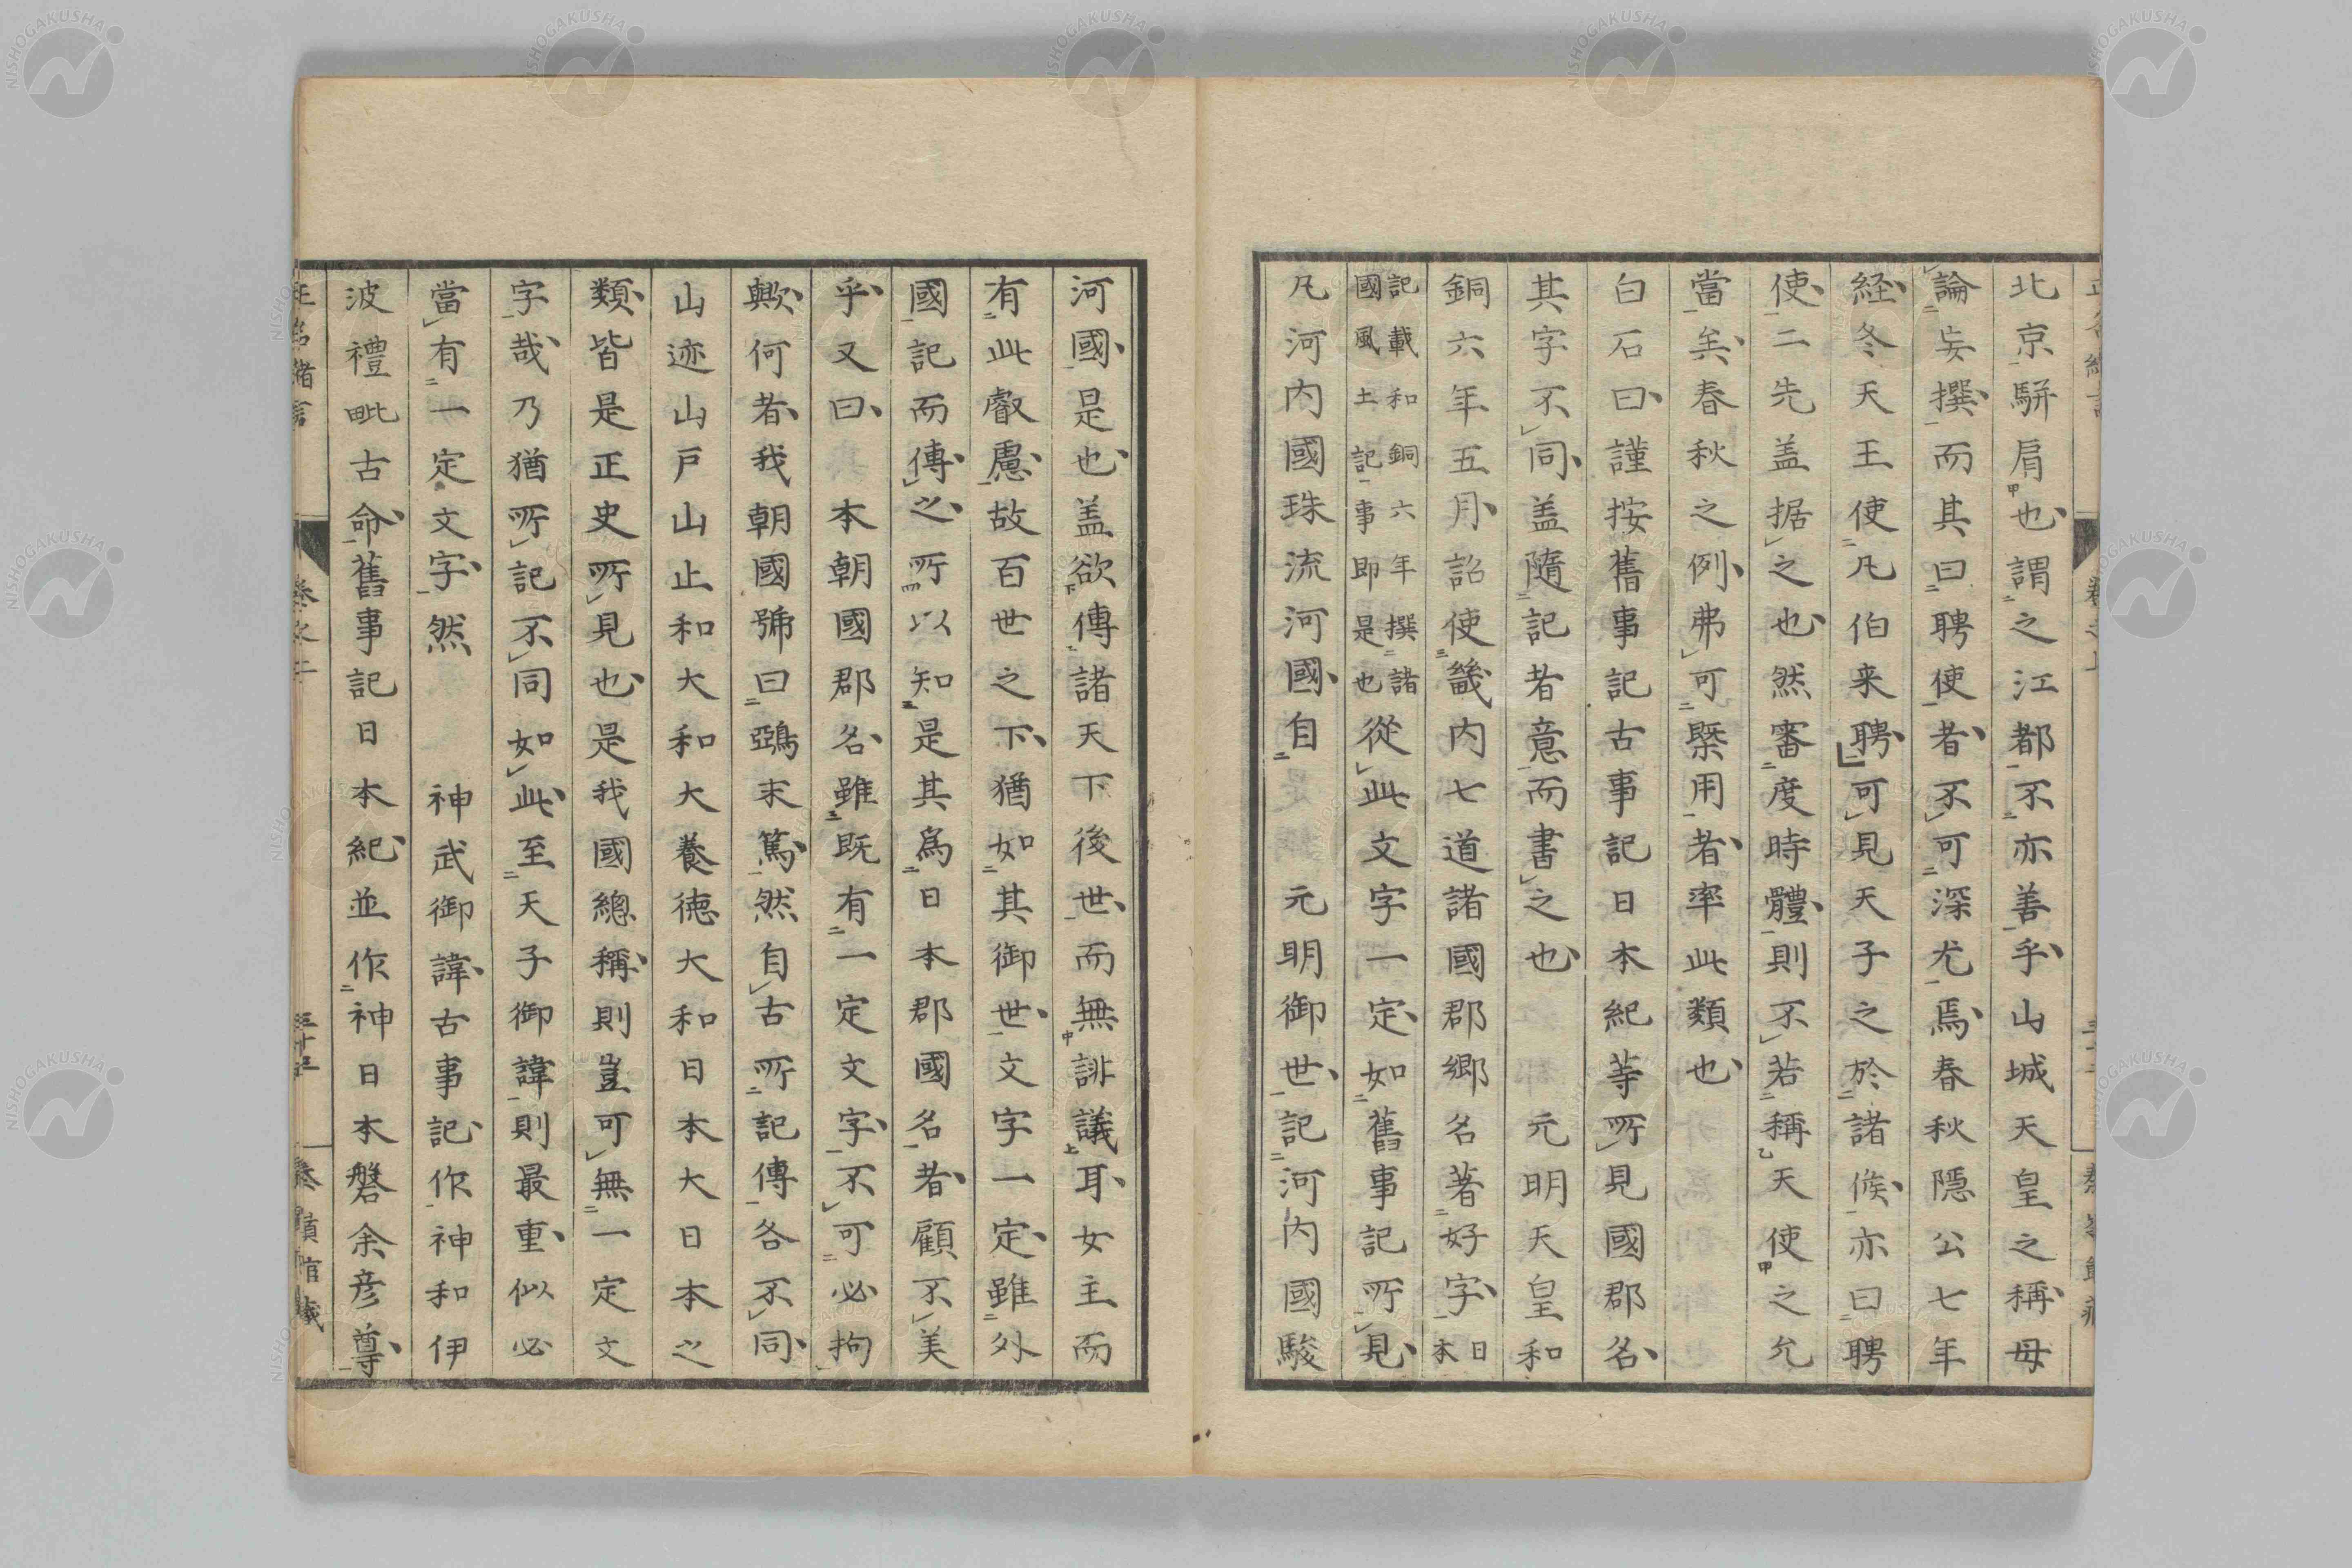 北京駢肩也謂之江都不亦善乎山城天皇之稱毋
論妄撰而其曰聘使者不可深尤焉春秋隱公七年
経冬天王使凡伯来聘可見天子之於諸候亦曰聘
使二先盖据之也然審度時體則不若稱天使之允
當矣春秋之例弗可槩用者率此類也
白石曰謹按舊事記古事記日本紀等所見國郡名
其字不同盖隨記者意而書之也　元明天皇和
銅六年五月詔使畿内七道諸國郡郷名著好字日本
記載和銅六年撰諸國風土記事即是也從此文字一定如舊事記所見
凡河内國珠流河國自　元明御世記河内國駿
河國是也盖欲傳諸天下後世而無誹議耳女主而
有此叡慮故百世之下猶如其御世文字一定雖外
國記而傳之所以知是其為日本郡國名者顧不美
乎又曰　本朝國郡名雖既有一定文字不可必拘
歟何者我朝國號曰鵶末篤然自古所記傳各不同
山迹山戸山止和大和大養徳大和日本大日本之
類皆是正史所見也是我國總稱則豈可無一定文
字哉乃猶所記不同如此至天子御諱則最重似必
當有一定文字然　神武御諱古事記作神和伊
波禮毗古命舊事記日本紀並作神日本磐余彦尊
正名緒言　卷之上　三十五